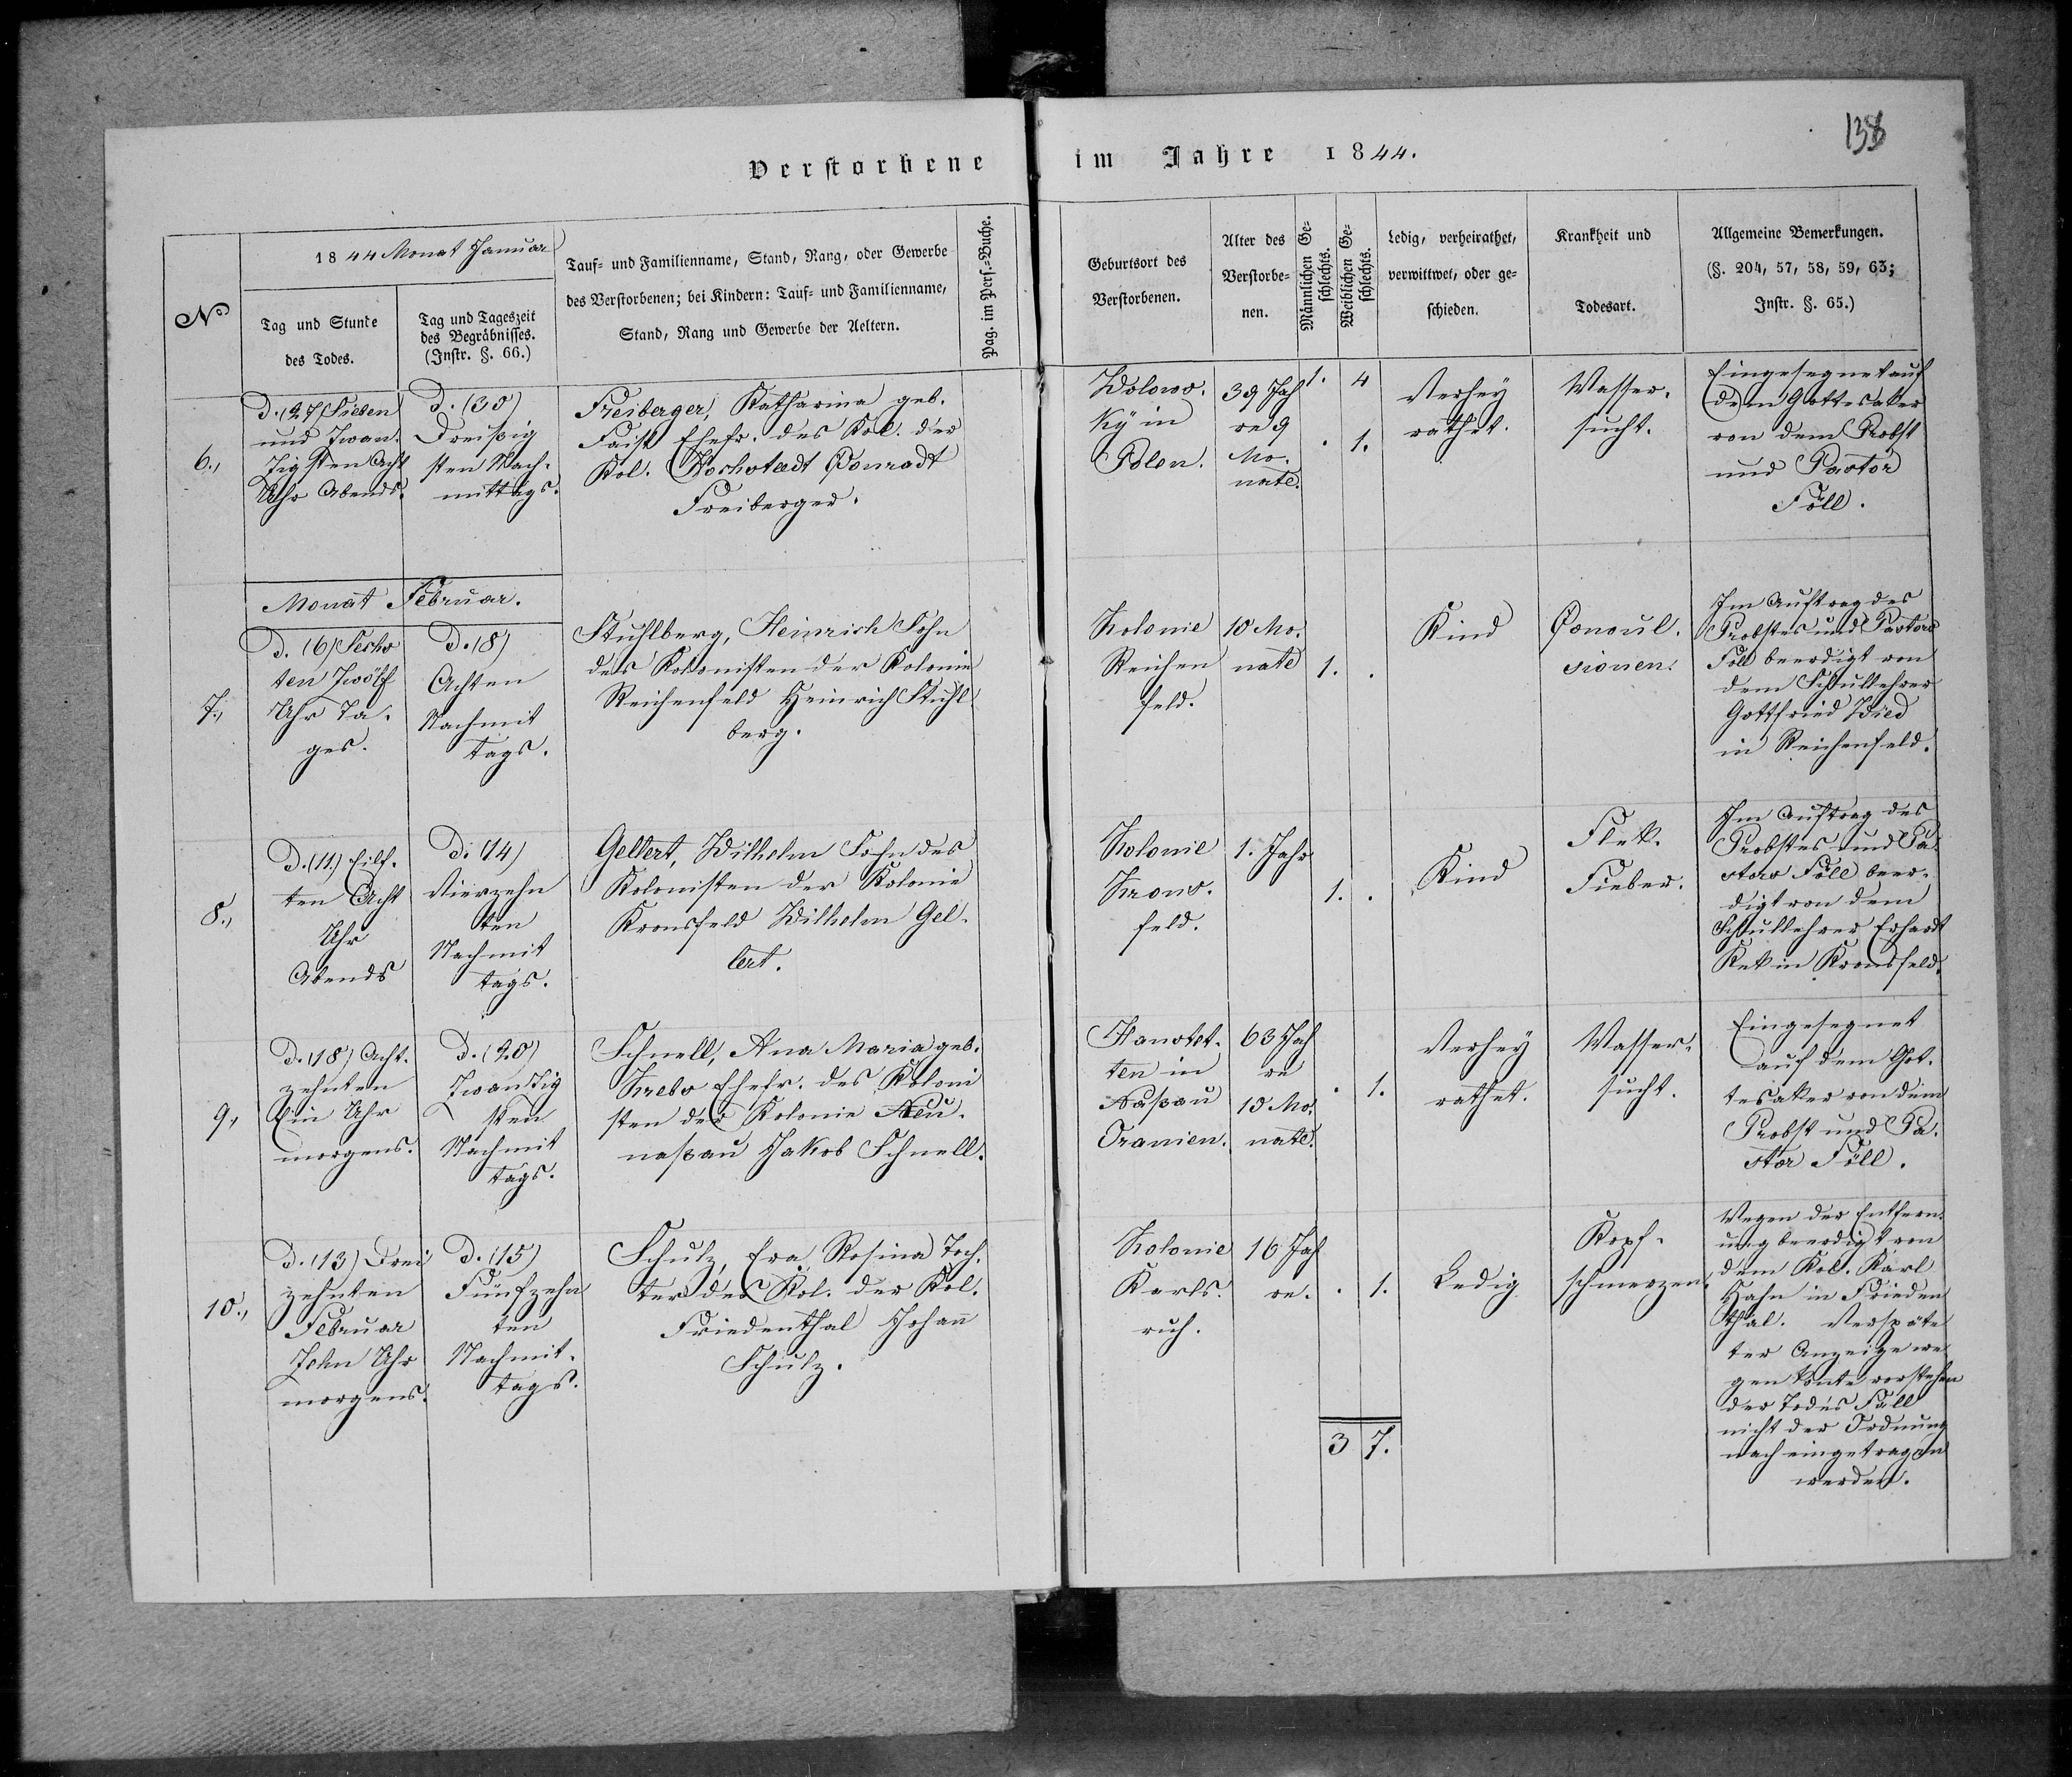 Verstorbene im Jahre 1844.
138
1844 Monat Januar
No
Tag und Stunde des Todes.
Tag und Tageszeit des Begräbnisses. (Instr. §. 66.)
Tauf= und Familienname, Stand, Rang, oder Gewerbe
des Verstorbenen; bei Kindern: Tauf= und Familienname,
Stand, Rang und Gewerbe der Aeltern.
Pag. im Pers.=Buche.
Geburtsort des Verstorbenen.
Alter des Verstorbe= nen.
Männlichen Ge= schlechts.
Weiblichen Ge= schlechts.
Ledig, verheirathet, verwittwet, oder ge= schieden.
Krankheit und Todesart.
Allgemeine Bemerkungen.
(§. 204, 57, 58, 59, 63;
Instr. §. 65.)
6.,
D. (27) Sieben
und Zwan.
zigsten Acht
Uhr Abends.
D. (30)
Dreißig
sten Nach.
mittags.
Freiberger, Katharina geb.
Faist Ehefr. des Kol. der
Kol. Hochstædt Conradt
Freiberger.
Wolows.
ky in
Polen.
39 Jah
re 9
Mo.
nate.
1. 4
. 1.
Verhey
rathet.
Wasser.
sucht.
Eingesegnet auf
dem Gottesaker
von dem Probst
und Pastor
Föll.
Monat Februar.
7.,
D. (6) Sechs
ten Zwölf
Uhr Ta.
ges.
D. (8)
Achten
Nachmit
tags.
Stuhlberg, Heinrich Sohn
des Kolonisten der Kolonie
Reichenfeld Heinrich Stuhl
berg.
Kolonie
Reichen
feld.
10 Mo.
nate
1. .
Kind
Convul.
sionen.
Im Auftrag des
Probstes und Pastors
Föll beerdigt von
dem Schullehrer
Gottfried Wied
in Reichenfeld.
8.,
D. (11.) Eilf.
ten Acht
Uhr
Abends
D. (14)
Vierzehn
ten
Nachmit
tags.
Gellert, Wilhelm Sohn des
Kolonisten der Kolonie
Kronsfeld Wilhelm Gel.
lert.
Kolonie
Krons.
feld.
1. Jahr
1. .
Kind
Flek.
Fieber.
Im Auftrag des
Probstes und Pa.
stors Föll beer.
digt von dem
Schullehrer Erhardt
Kek in Kronsfeld.
9.,
D. (18) Acht.
zehnten
Ein Uhr
morgens.
D. (20)
Zwanzig
sten
Nachmit
tags.
Schnell, Ana Maria geb.
Krebs Ehefr. des Koloni
sten der Kolonie Neu.
naßau Jakob Schnell.
Hanstet.
ten in
Naßau
Oranien.
63 Jah
re
10 Mo.
nate.
. 1.
Verhey
rathet.
Wasser.
sucht.
Eingesegnet
auf dem Got.
tesaker von dem
Probst und Pa.
stor Föll.
10.,
D. (13) Drei
zehnten
Februar
Zehn Uhr
morgens.
D. (15)
Fünfzehn
ten
Nachmit.
tags.
Schulz, Eva Rosina Toch.
ter des Kol. der Kol.
Friedenthal Johann
Schulz.
Kolonie
Karls.
ruh.
16 Jah
re.
. 1.
Ledig
Kopf.
schmerzen.
Wegen der Entfern.
ung beerdigt von
dem Kol. Karl
Hahn in Frieden
thal. Verspäte
ter Anzeige we
gen konte vorstehen
der Todes Fall
nicht der Ordnung
nach eingetragen
werden.
3 7.